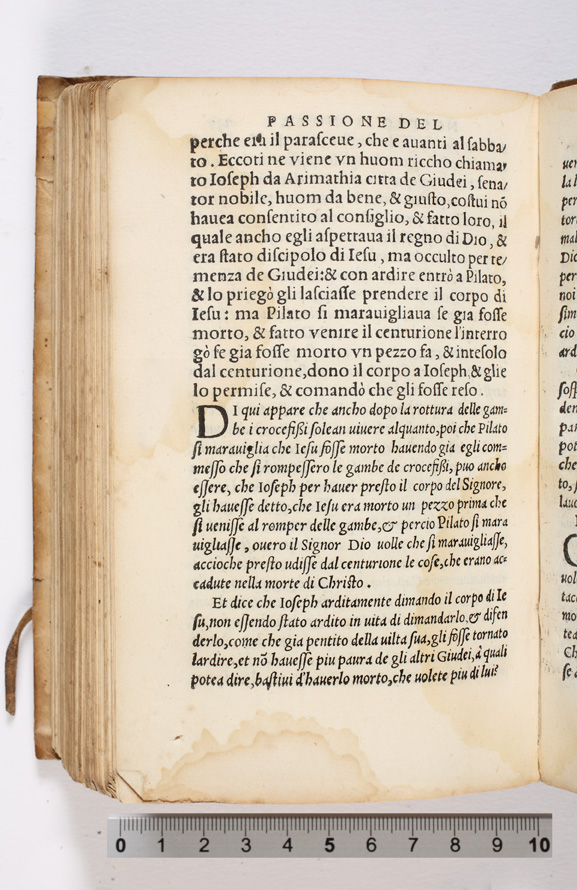 PASSIONE DEL
perche era il parasceue, che e auanti al sabba/
to. Eccoti ne viene vn huom riccho chiama/
to Ioseph da Arimathia citta de Giudei, sena/
tor nobile, huom da bene, & giusto, costui nõ
hauea consentito al consiglio, & fatto loro, il
quale ancho egli aspettaua il regno di Dio, &
era stato discipolo di Iesu, ma occulto per te/
menza de Giudei: & con ardire entrò a Pilato,
& lo priegò gli lasciasse prendere il corpo di
Iesu: ma Pilato si marauigliaua se gia fosse
morto, & fatto venire il centurione l'interro
gò se gia fosse morto vn pezzo fa, & intesolo
dal centurione, dono il corpo a Ioseph, & glie
lo permise, & comandò che gli fosse reso.
DI qui appare che ancho dopo la rottura delle gam=
be i crocefissi solean uiuere alquanto, poi che Pilato
si marauiglia che Iesu fosse morto hauendo gia egli com=
messo che si rompessero le gambe de crocefissi, puo ancho
essere, che Ioseph per hauer presto il corpo del Signore,
gli hauesse detto, che Iesu era morto un pezzo prima che
si uenisse al romper delle gambe, & percio Pilato si mara
uigliasse, ouero il Signor Dio uolle che si marauigliasse,
accioche presto udisse dal centurione le cose, che erano ac=
cadute nella morte di Christo.
Et dice che Ioseph arditamente dimando il corpo di Ie
su, non essendo stato ardito in uita di dimandarlo, & difen
derlo, come che gia pentito della uilta sua, gli fosse tornato
lardire, et nõ hauesse piu paura de gli altri Giudei, à quali
potea dire, bastiui d'hauerlo morto, che uolete piu di lui?
0 1 2 3 4 5 6 7 8 9 10